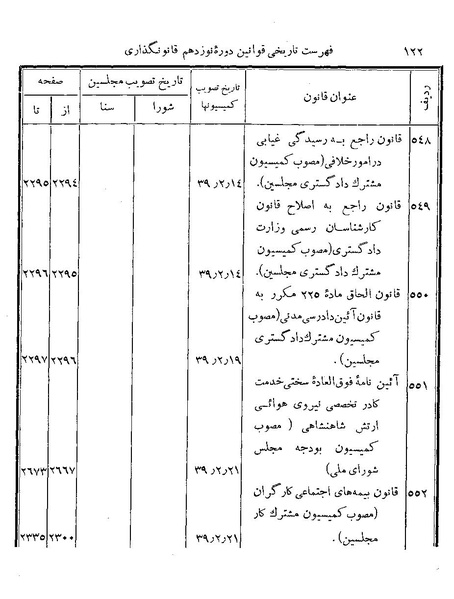 ۱۲۲ فهرست تاریخی قوانین دورهٔ نوزدهم قانونگذاری
ردیف عنوان قانون تاریخ تصویب کمیسیونها تاریخ تصویب مجلسین صفحه
شورا سنا از تا
۵۴۸ قانون راجع به رسیدگی غیابی
در امور خلافی (مصوب کمیسیون
مشترک دادگستری مجلسین). ۳۹٫۲٫۱۴ ۲۲۹۴ ۲۲۹۵
۵۴۹ قانون راجع به اصلاح قانون
کارشناسان رسمی وزارت
دادگستری (مصوب کمیسیون
مشترک دادگستری مجلسین). ۳۹٫۲٫۱۴ ۲۲۹۵ ۲۲۹۶
۵۵۰ قانون الحاق مادهٔ ۲۲۵ مکرر به
قانون آئین دادرسی مدنی (مصوب
کمیسیون مشترک دادگستری
مجلسین). ۳۹٫۲٫۱۹ ۲۲۹۶ ۲۲۹۷
۵۵۱ آئین نامهٔ فوق‌العادهٔ سختی خدمت
کادر تخصصی نیروی هوائی
ارتش شاهنشاهی (مصوب
کمیسیون بودجه مجلس
شورای ملی) ۳۹٫۲٫۲۱ ۲۶۶۷ ۲۶۷۳
۵۵۲ قانون بیمه‌های اجتماعی کارگران
(مصوب کمیسیون مشترک کار
مجلسین). ۳۹٫۲٫۲۱ ۲۳۰۰ ۲۳۳۵